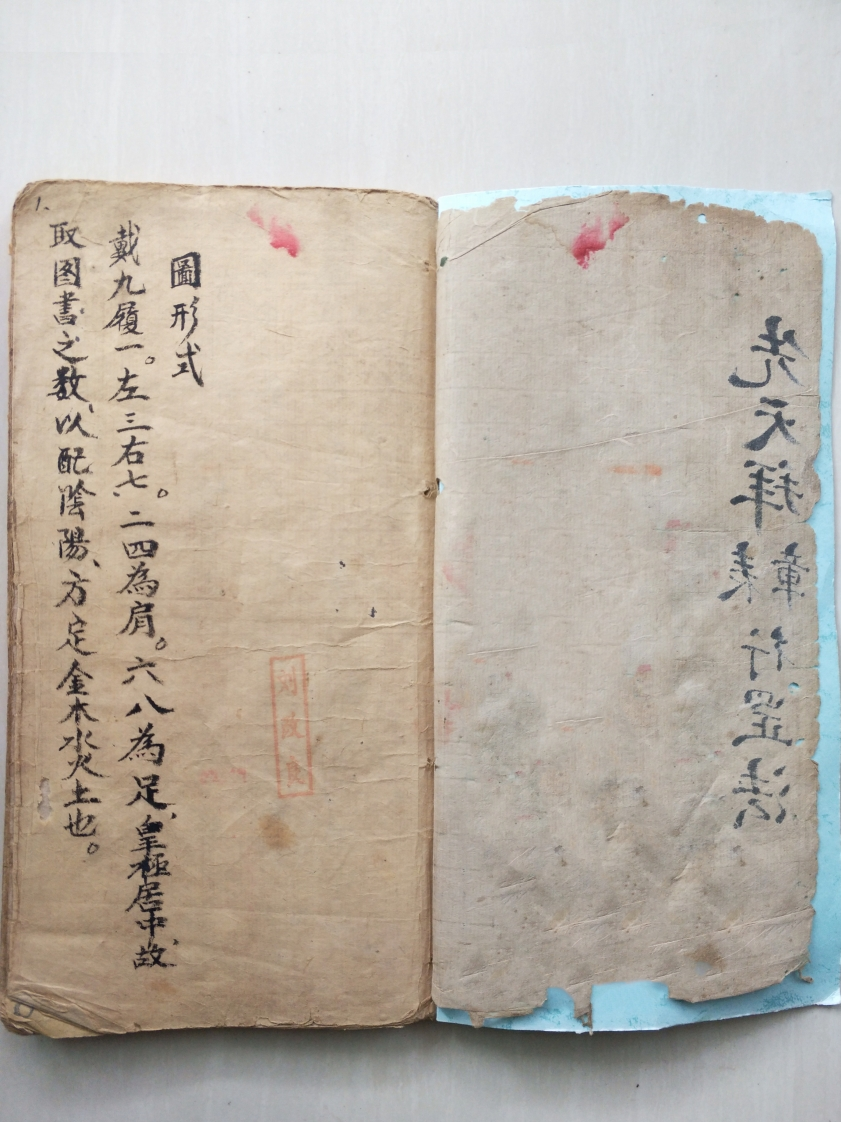 先天拜章表行罡法
圖形式
戴九履一。左三右七。二四為肩。六八為足、皇極居中、故
取图書之数、以配陰陽、方定金木水火土也。
1.
刘政良